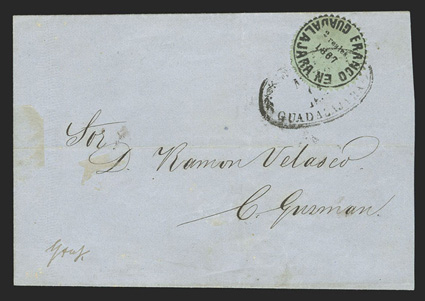 FRANCO EN GUADALAJARA
1867
GUADALAJARA
Sor
D. Ramon Velasco
C. Guzman.